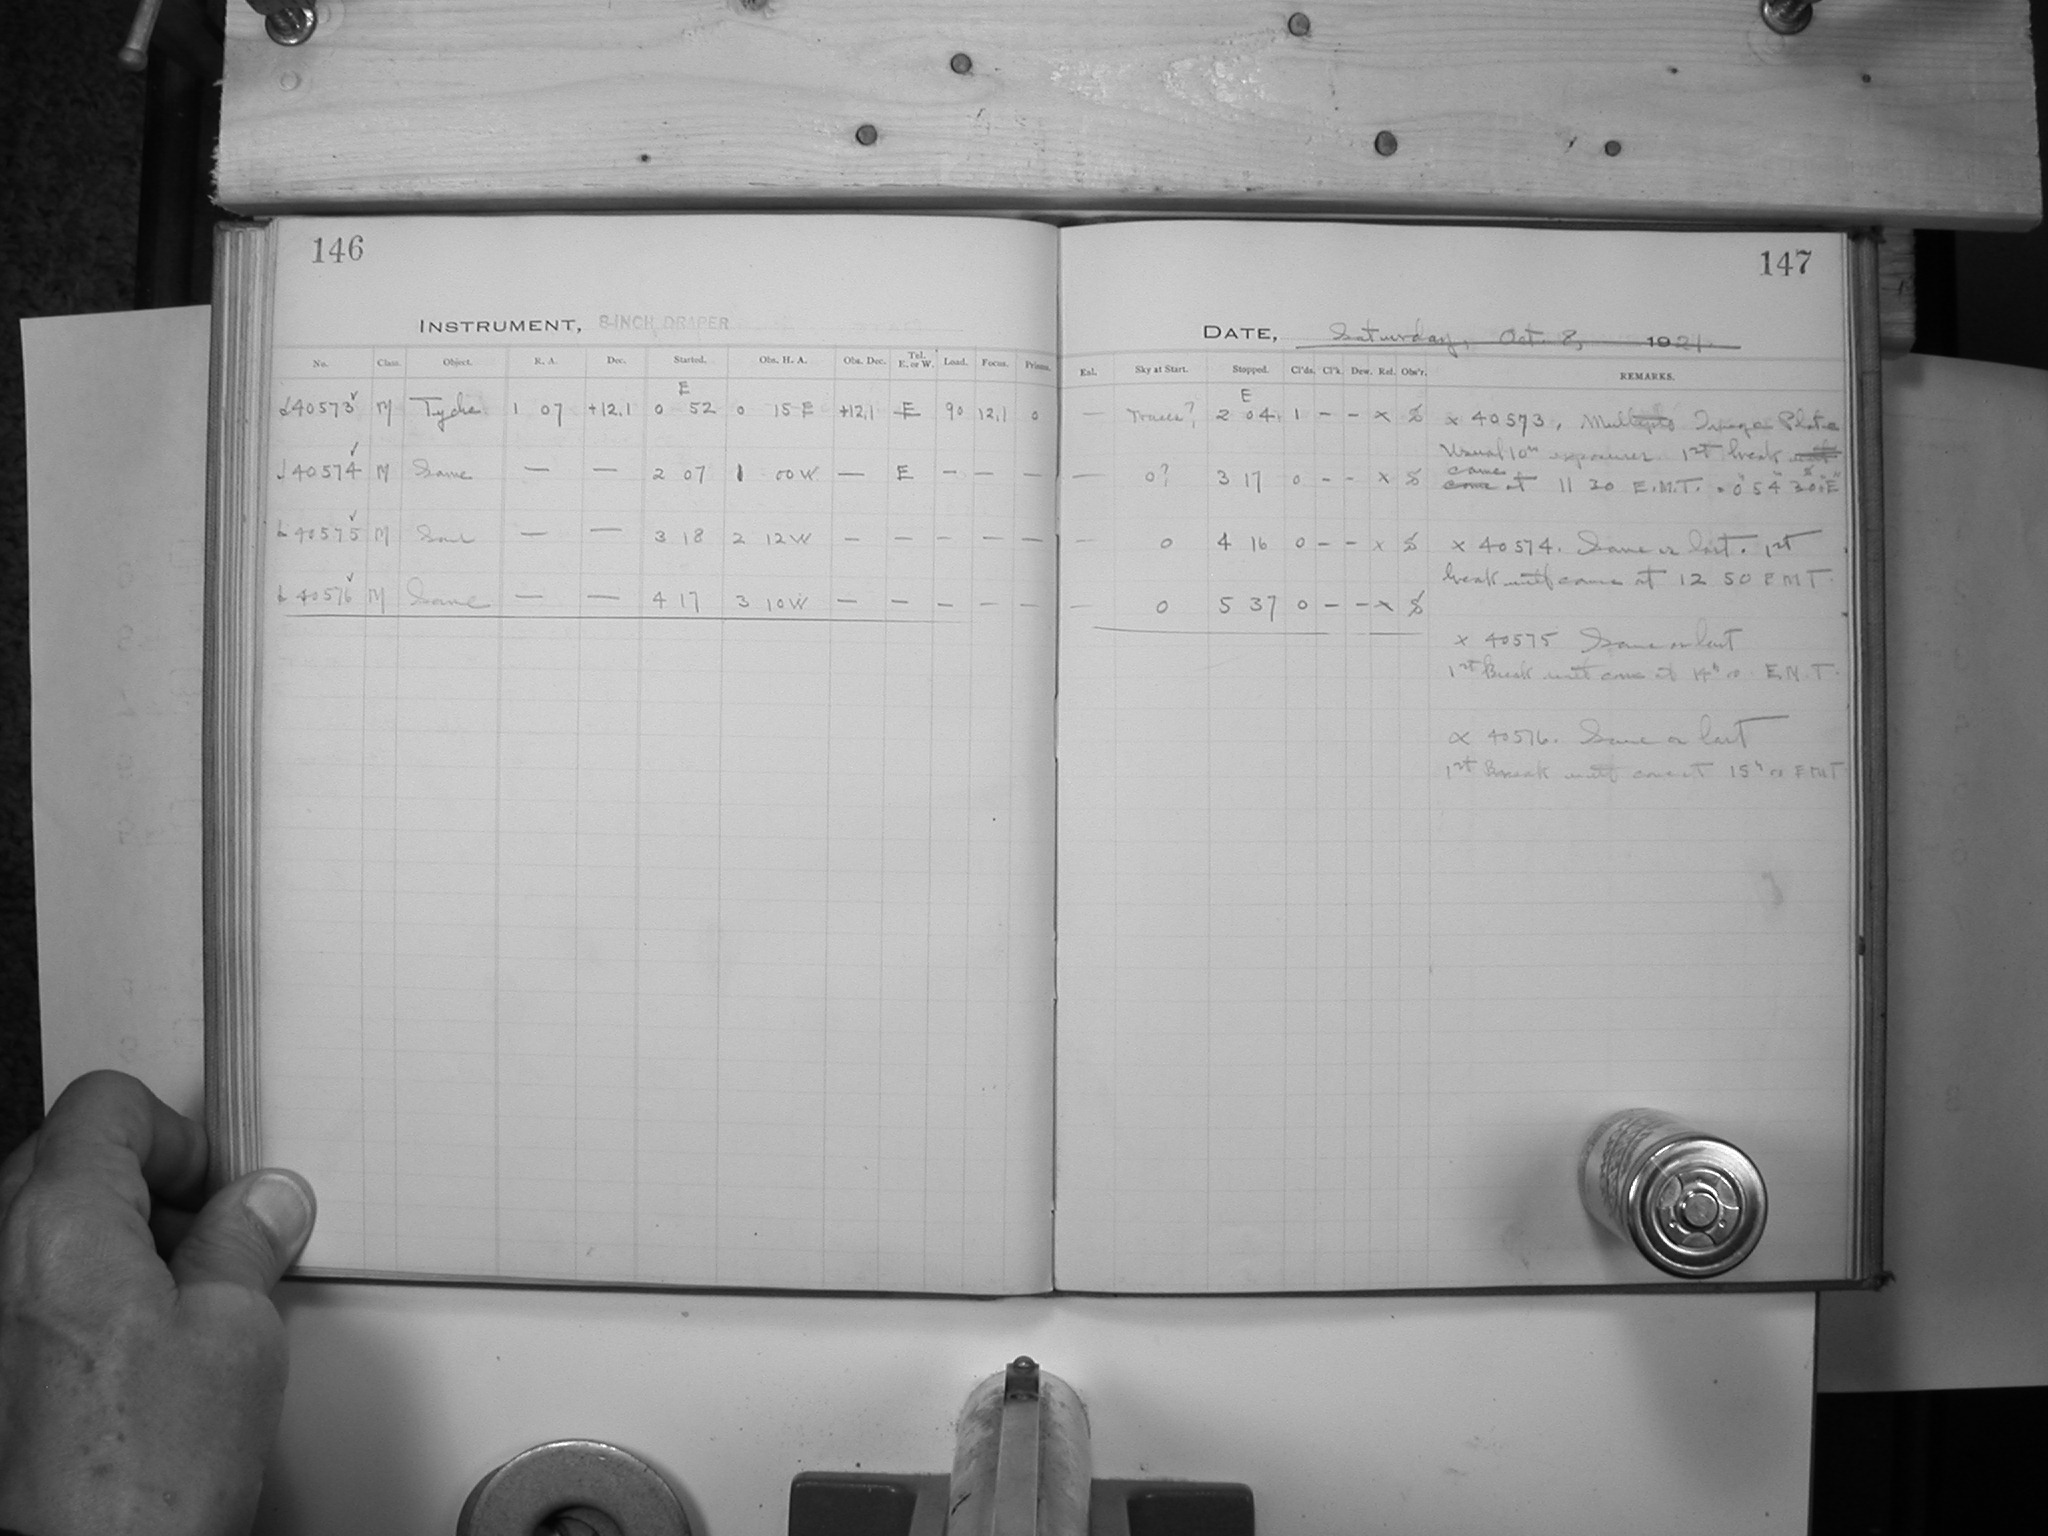 146
147
INSTRUMENT, 8-INCH DRAPER
DATE, Saturday, Oct. 8, 1921.
No. Class. Object. R. A. Dec. Started. Obs. H. A. Obs. Dec. Tel. E. or W. Load. Focus. Prisms.
Exl. Sky at Start. Stopped. Cl'ds. Cl'k. Dew. Rel. Obs'r. REMARKS.
E
E
40573 M Tyche 1 07 +12.1 0 52 0 15 E +12.1 E 90 12.1 0
— Traces? 2 04 1 – – x
40574 M Same — — 2 07 1 00 W — E – – –
— 0? 3 17 0 – – x
40575 M — — 3 18 2 12 W – – – – –
— 0 4 16 0 – – x
40576 M Same — — 4 17 3 10 W – – – – –
— 0 5 37 0 – – x
x 40573, Multiple Image Plate
Usual 10m exposures 1st break
came
at 11 30 E.M.T. = 0 54 30 E
x 40574. Same as last. 1st
break will come at 12 50 E M T.
x 40575 Same as last
1st Break will come at 14h 00 E.M.T.
x 40576. Same as last
1st Break will come at 15h 00 E M T